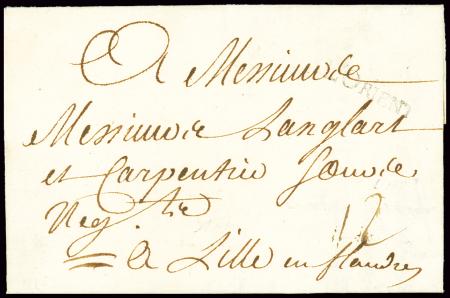 A Messieurs
L'ORIENT
Messieurs Langlart
et Carpentier
Neg.
12
A Lille en flandres